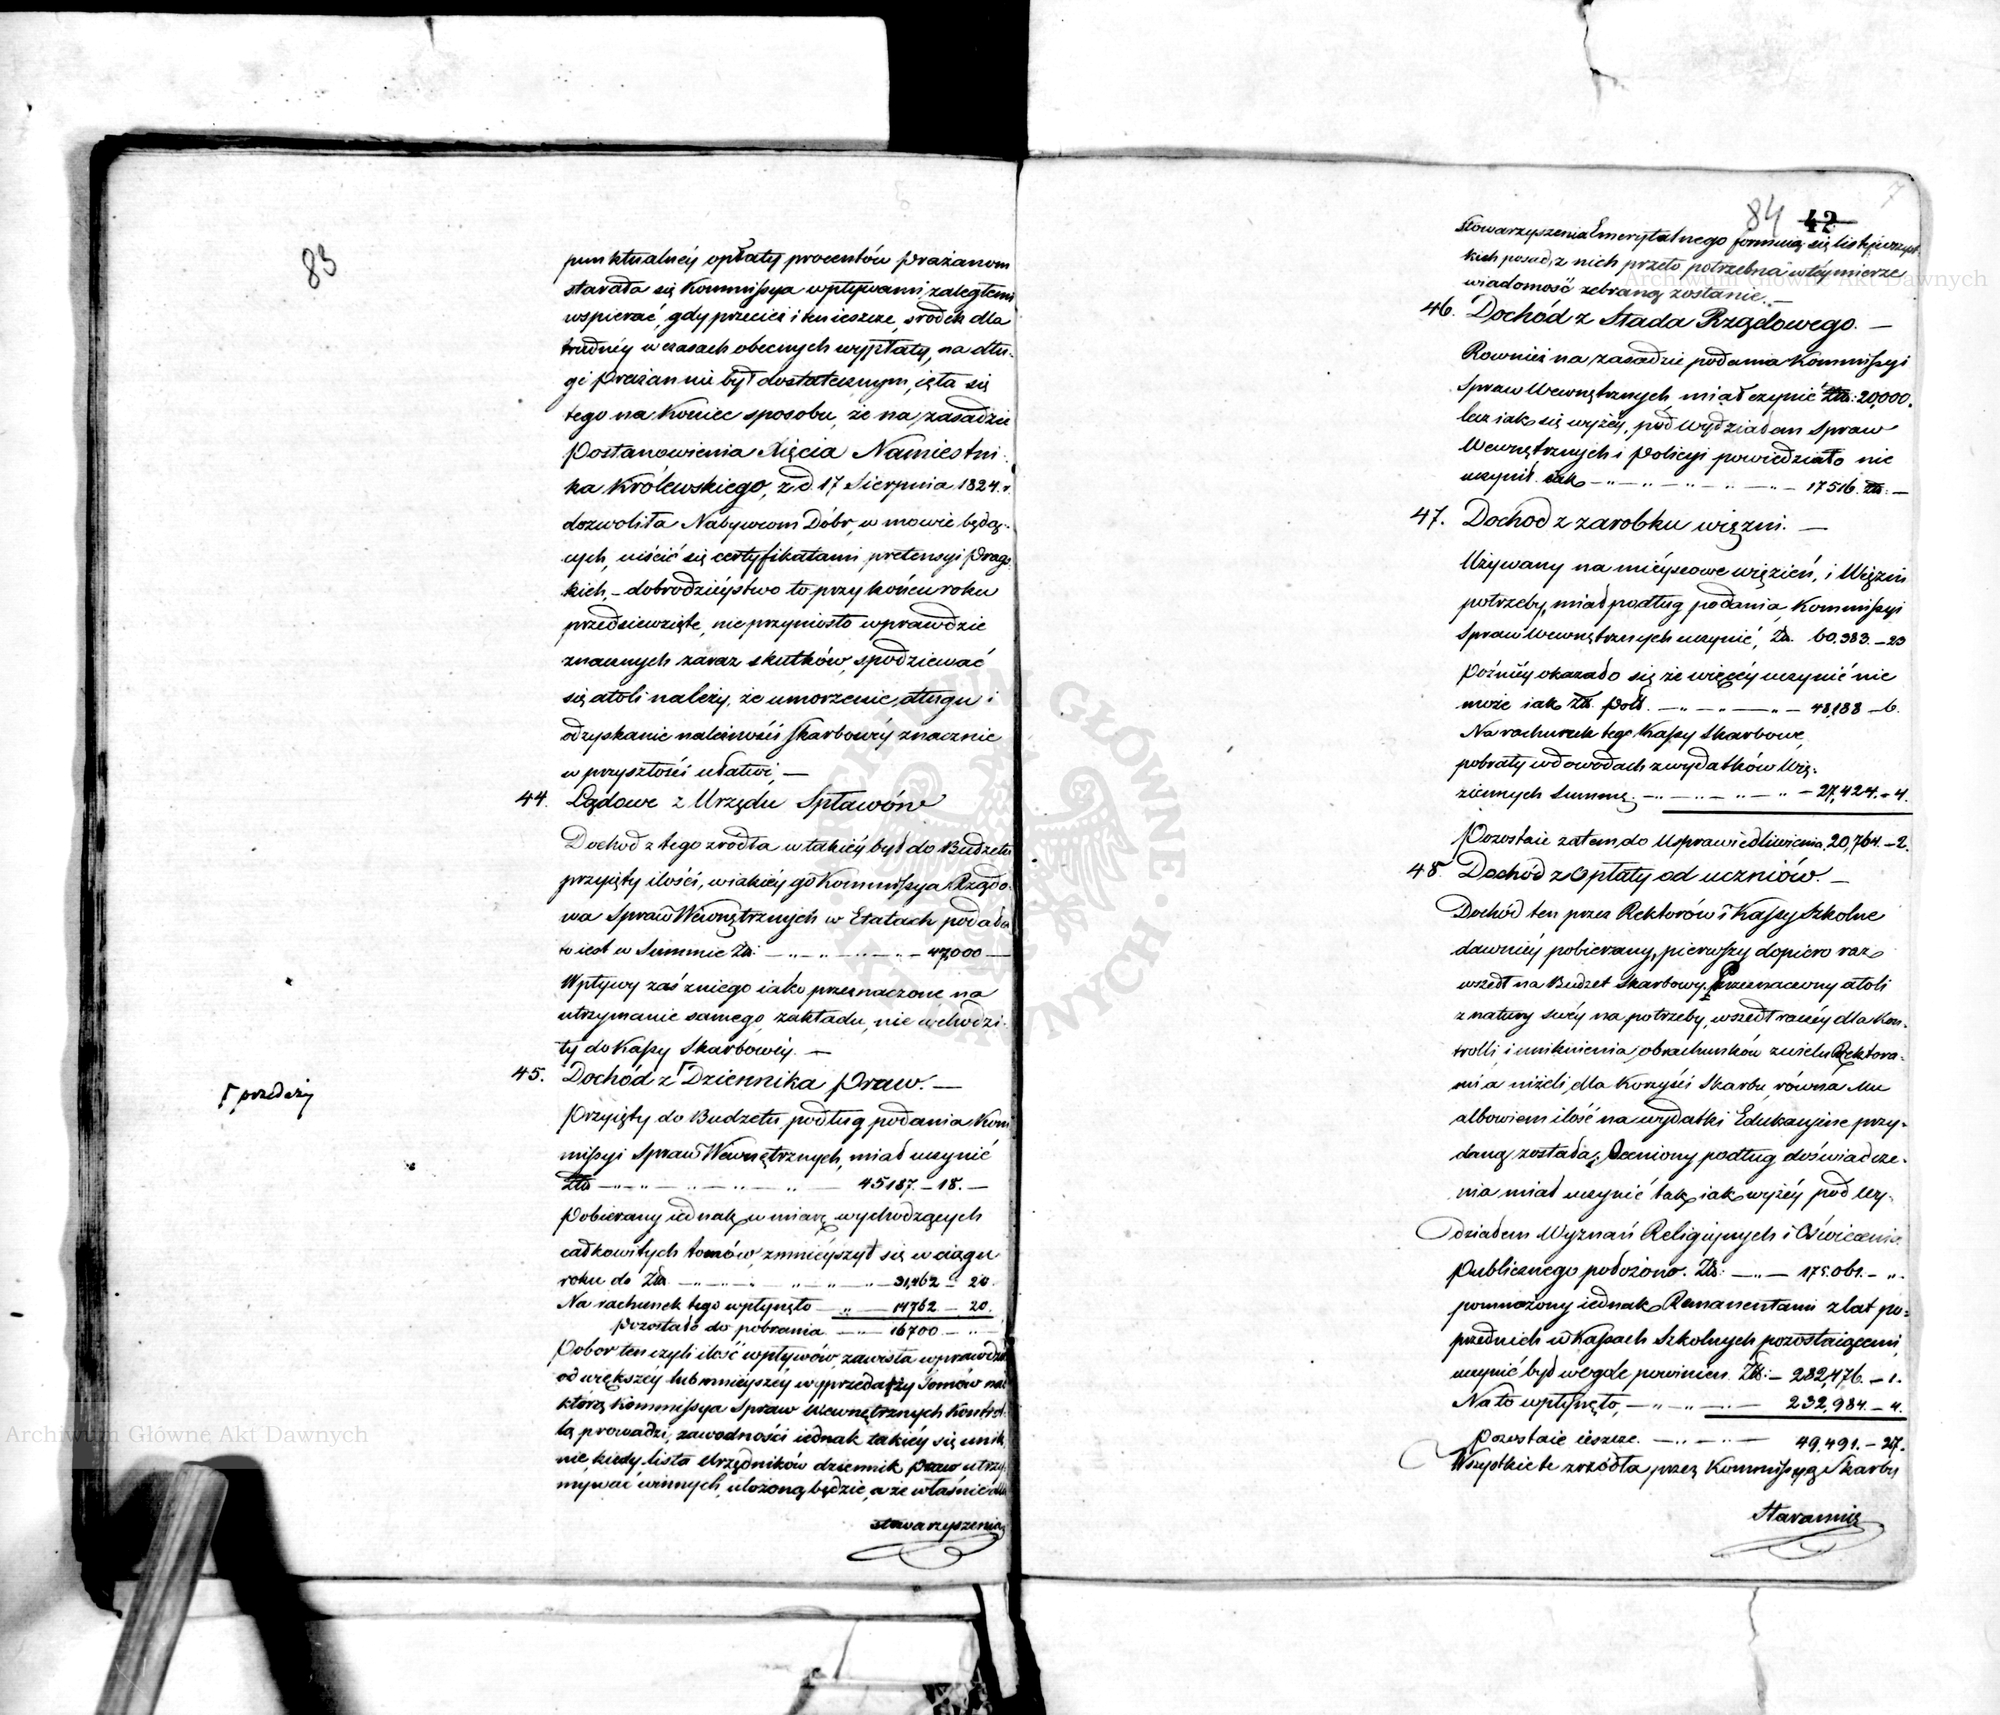 83
punktualnéy opłaty procentów Prażanom
starała się Kommissya wpływami zaległemi
wspierać, gdy przecież i ten ieszcze środek dla
trudnéy w czasach obecnych wypłaty, na dłu-
gi Prażan nie był dostatecznym, ięła się
tego na koniec sposobu, że na zasadzie
Postanowienia Xięcia Namiestni-
ka Królewskiego, z d. 17 Sierpnia 1824. r.
dozwoliła Nabywcom Dóbr, w mowie będą-
cych, uiścić się certyfikatami pretensyi Prags-
kich, – dobrodzieystwo to przy końcu roku
przedsiewzięte, nie przyniosło wprawdzie
znacznych zaraz skutków, spodziewać
się atoli należy, że umorzenie długu i
odzyskanie należności skarbowéy znacznie
w przyszłości ułatwi, —
44. Lądowe z Urzędu Spławów
Dochod z tego zrodła w takiéy był do Budżetu
przyięty ilości, w iakiéy go Kommissya Rządo-
wa Spraw Wewnętrznych w Etatach podała
to iest w Summie Zł: — „ — „ — „ — 47,000 —
Wpływy zaś z niego iako przeznaczone na
utrzymanie samego zakładu, nie wchodzi-
ły do Kassy Skarbowéy. —
45. Dochód z ⌈ Dziennika Praw. —
⌈ przedaży
Przyięty do Budżetu podług podania Kom
missyi Spraw Wewnętrznych, miał uczynić
Złb — „ — „ — „ — „ — 45187. — 18. —
Pobierany iednak w miarę wychodzących
całkowitych tomów, zmnieyszył się w ciągu
roku do Złb — „ — „ — „ — 31,462 — 20.
Na rachunek tego wpłynęło — „ — 14762 — 20.
Pozostało do pobrania — „ — 16700 — „ —
Pobor ten czyli ilość wpływów, zawisła wprawdzie
od większéy lub mnieyszéy wyprzedaży Tomów nad
którą Kommissya Spraw Wewnętrznych Kontrol-
lą prowadzi, zawodności iednak takiéy się unik
nie, kiedy lista Urzędników dziennik praw utrzy-
mywać winnych, ułożoną będzie, a że właśnie dla
stowarzyszenia
84 42
Stowarzyszenia Emerytalnego formuią się listy wszyst-
kich posad, z nich przeto potrzebna w téy mierze
wiadomość zebraną zostanie. —
46. Dochód z Stada Rządowego. —
Rownież na zasadzie podania Kommissyi
Spraw Wewnętrznych miał czynić Złb: 20,000.
lecz iak się wyżéy, pod Wydziałem Spraw
Wewnętrznych i Policyi powiedziało nie
uczynił iak — „ — „ — „ — „ — 17516. Złb: —
47. Dochod z zarobku więzni. —
Używany na mieyscowe więzień, i Więzni
potrzeby, miał podług podania Kommissyi
Spraw Wewnętrznych uczynić, Zł. 60,383. — 23
Poźniéy okazało się że więcéy uczynić nie
może iak Złt. Pols. — „ — „ — „ — 48,188 — 6.
Na rachunek tego Kassy Skarbowe,
pobrały w dowodach z wydatków Wię-
ziennych Summę. — „ — „ — „ — 27,424. — 4.
Pozostaie zatem do Usprawiedliwienia 20,764. — 2.
48. Dochód z Opłaty od uczniów. —
Dochód ten przez Rektorów i Kassy Szkolne
dawniéy pobierany, pierwszy dopiero raz
wszedł na Budżet Skarbowy. Przeznaczony atoli
z natury swéy na potrzeby, wszedł raczéy dla Kon-
trolli i uniknienia obrachunków z wielu Rektora-
mi a niżeli, dla Korzyści Skarbu, równa Mu
albowiem ilość na wydatki Edukacyjne przy-
daną została. Oceniony podług doświadcze-
nia miał uczynić tak iak wyżéy pod Wy-
działem Wyznań Religijnych i Oświecenia
Publicznego położono. Złt: — „ — 175.061. — „
pomnożony iednak Remanentami z lat po-
przednich w Kassach Szkolnych pozostaiącemi,
uczynić był w ogóle powinien Zł: — 282,476. — 1.
Na to wpłynęło, — „ — „ — 232,984. — 4.
Pozostaie ieszcze. — „ — „ — 49,491. — 27.
Wszystkie te źrzódła przez Kommissyą Skarbu
Starannie
Archiwum Główne Akt Dawnych
Archiwum Główne Akt Dawnych
ARCHIWUM GŁÓWNE AKT DAWNYCH